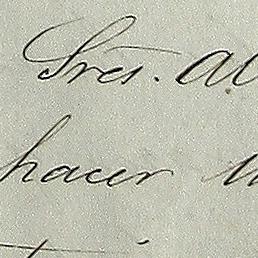 Sres. al
hacer u